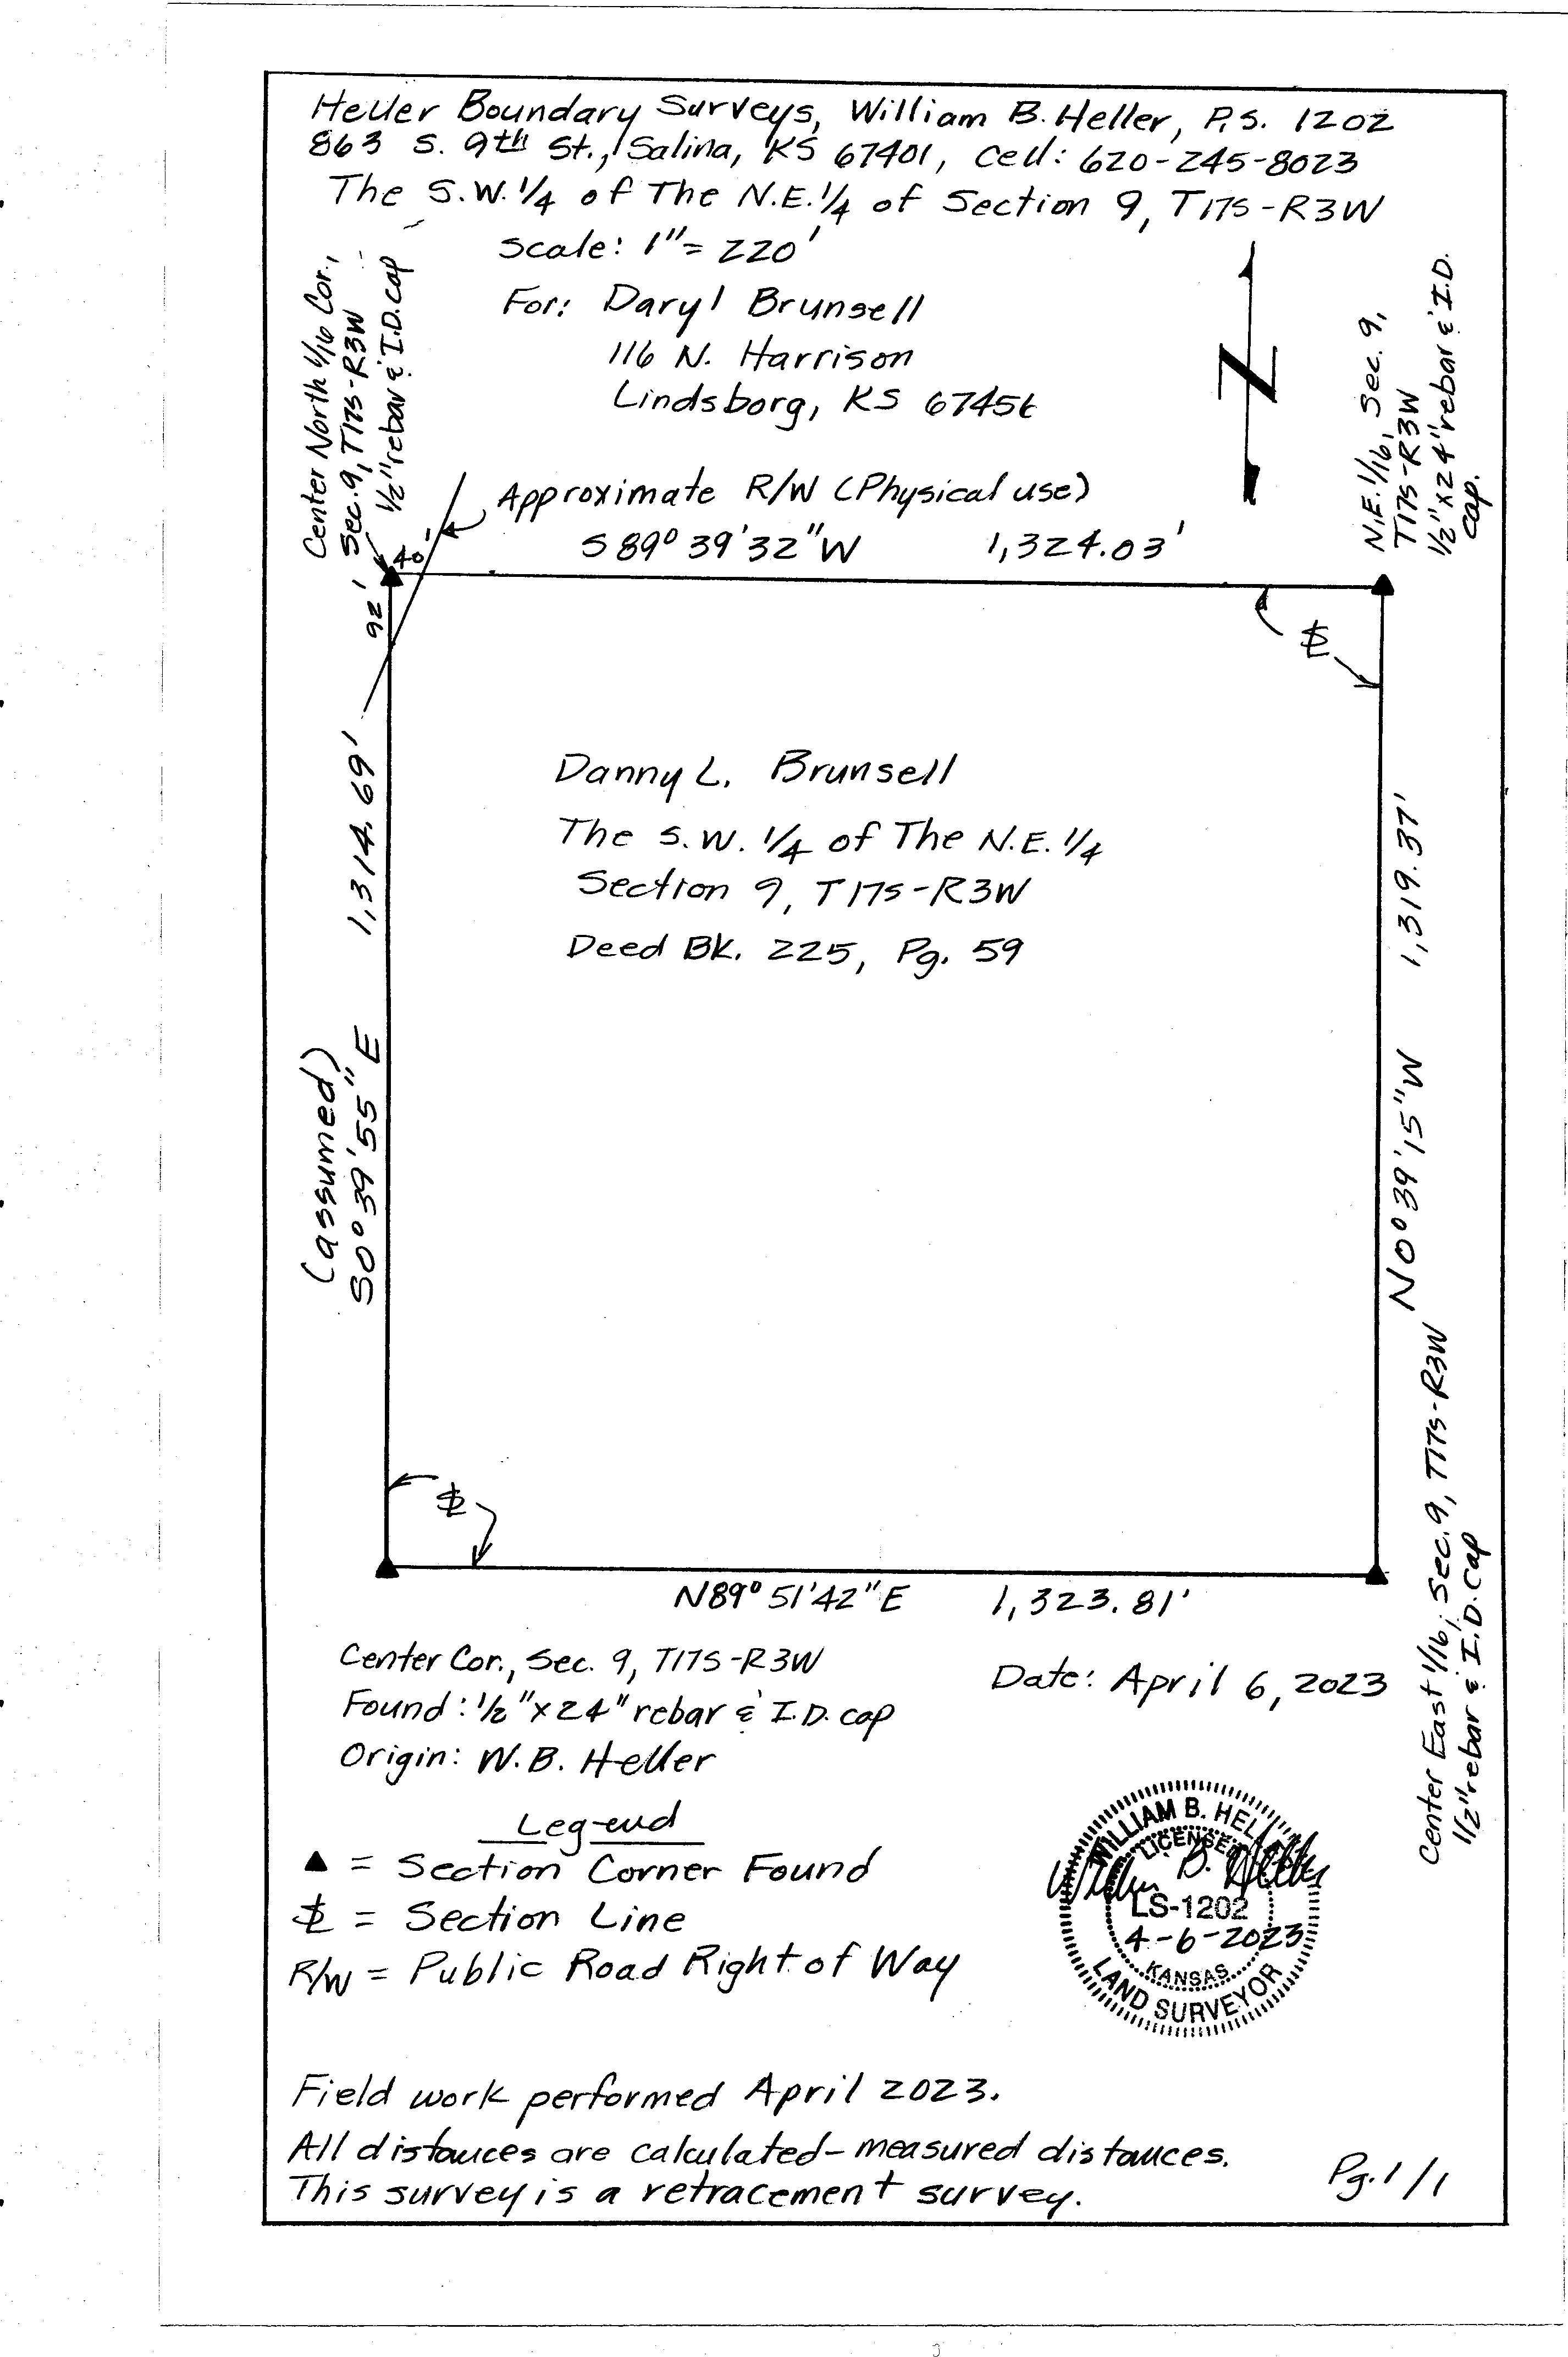 Heller Boundary Surveys, William B. Heller, P.S. 1202
863 S. 9th St., Salina, KS 67401, Cell: 620-245-8023
The S.W. 1/4 of The N.E. 1/4 of Section 9, T17S-R3W
Scale: 1"= 220'
For: Daryl Brunsell
116 N. Harrison
Lindsborg, KS 67456
Center North 1/16 Cor.,
Sec. 9, T17S-R3W
1/2" rebar & I.D. cap
N.E. 1/16, Sec. 9,
T17S-R3W
1/2"x24" rebar & I.D.
cap.
N
Approximate R/W (Physical use)
S 89° 39' 32" W 1,324.03'
40'
92'
Danny L. Brunsell
The S.W. 1/4 of The N.E. 1/4
Section 9, T17S-R3W
Deed Bk. 225, Pg. 59
1,314.69'
(assumed)
S0° 39' 55" E
1,319.37'
N0° 39' 15" W
N89° 51' 42" E 1,323.81'
Center East 1/16, Sec. 9, T17S-R3W
1/2" rebar & I.D. Cap
Center Cor., Sec. 9, T17S-R3W
Found: 1/2"x24" rebar & I.D. cap
Origin: W.B. Heller
Date: April 6, 2023
Legend
▲ = Section Corner Found
= Section Line
R/W = Public Road Right of Way
WILLIAM B. HEL
LICENSED
William B. Heller
LS-1202
4-6-2023
KANSAS
LAND SURVEYOR
Field work performed April 2023.
All distances are calculated-measured distances.
This survey is a retracement survey.
Pg. 1/1